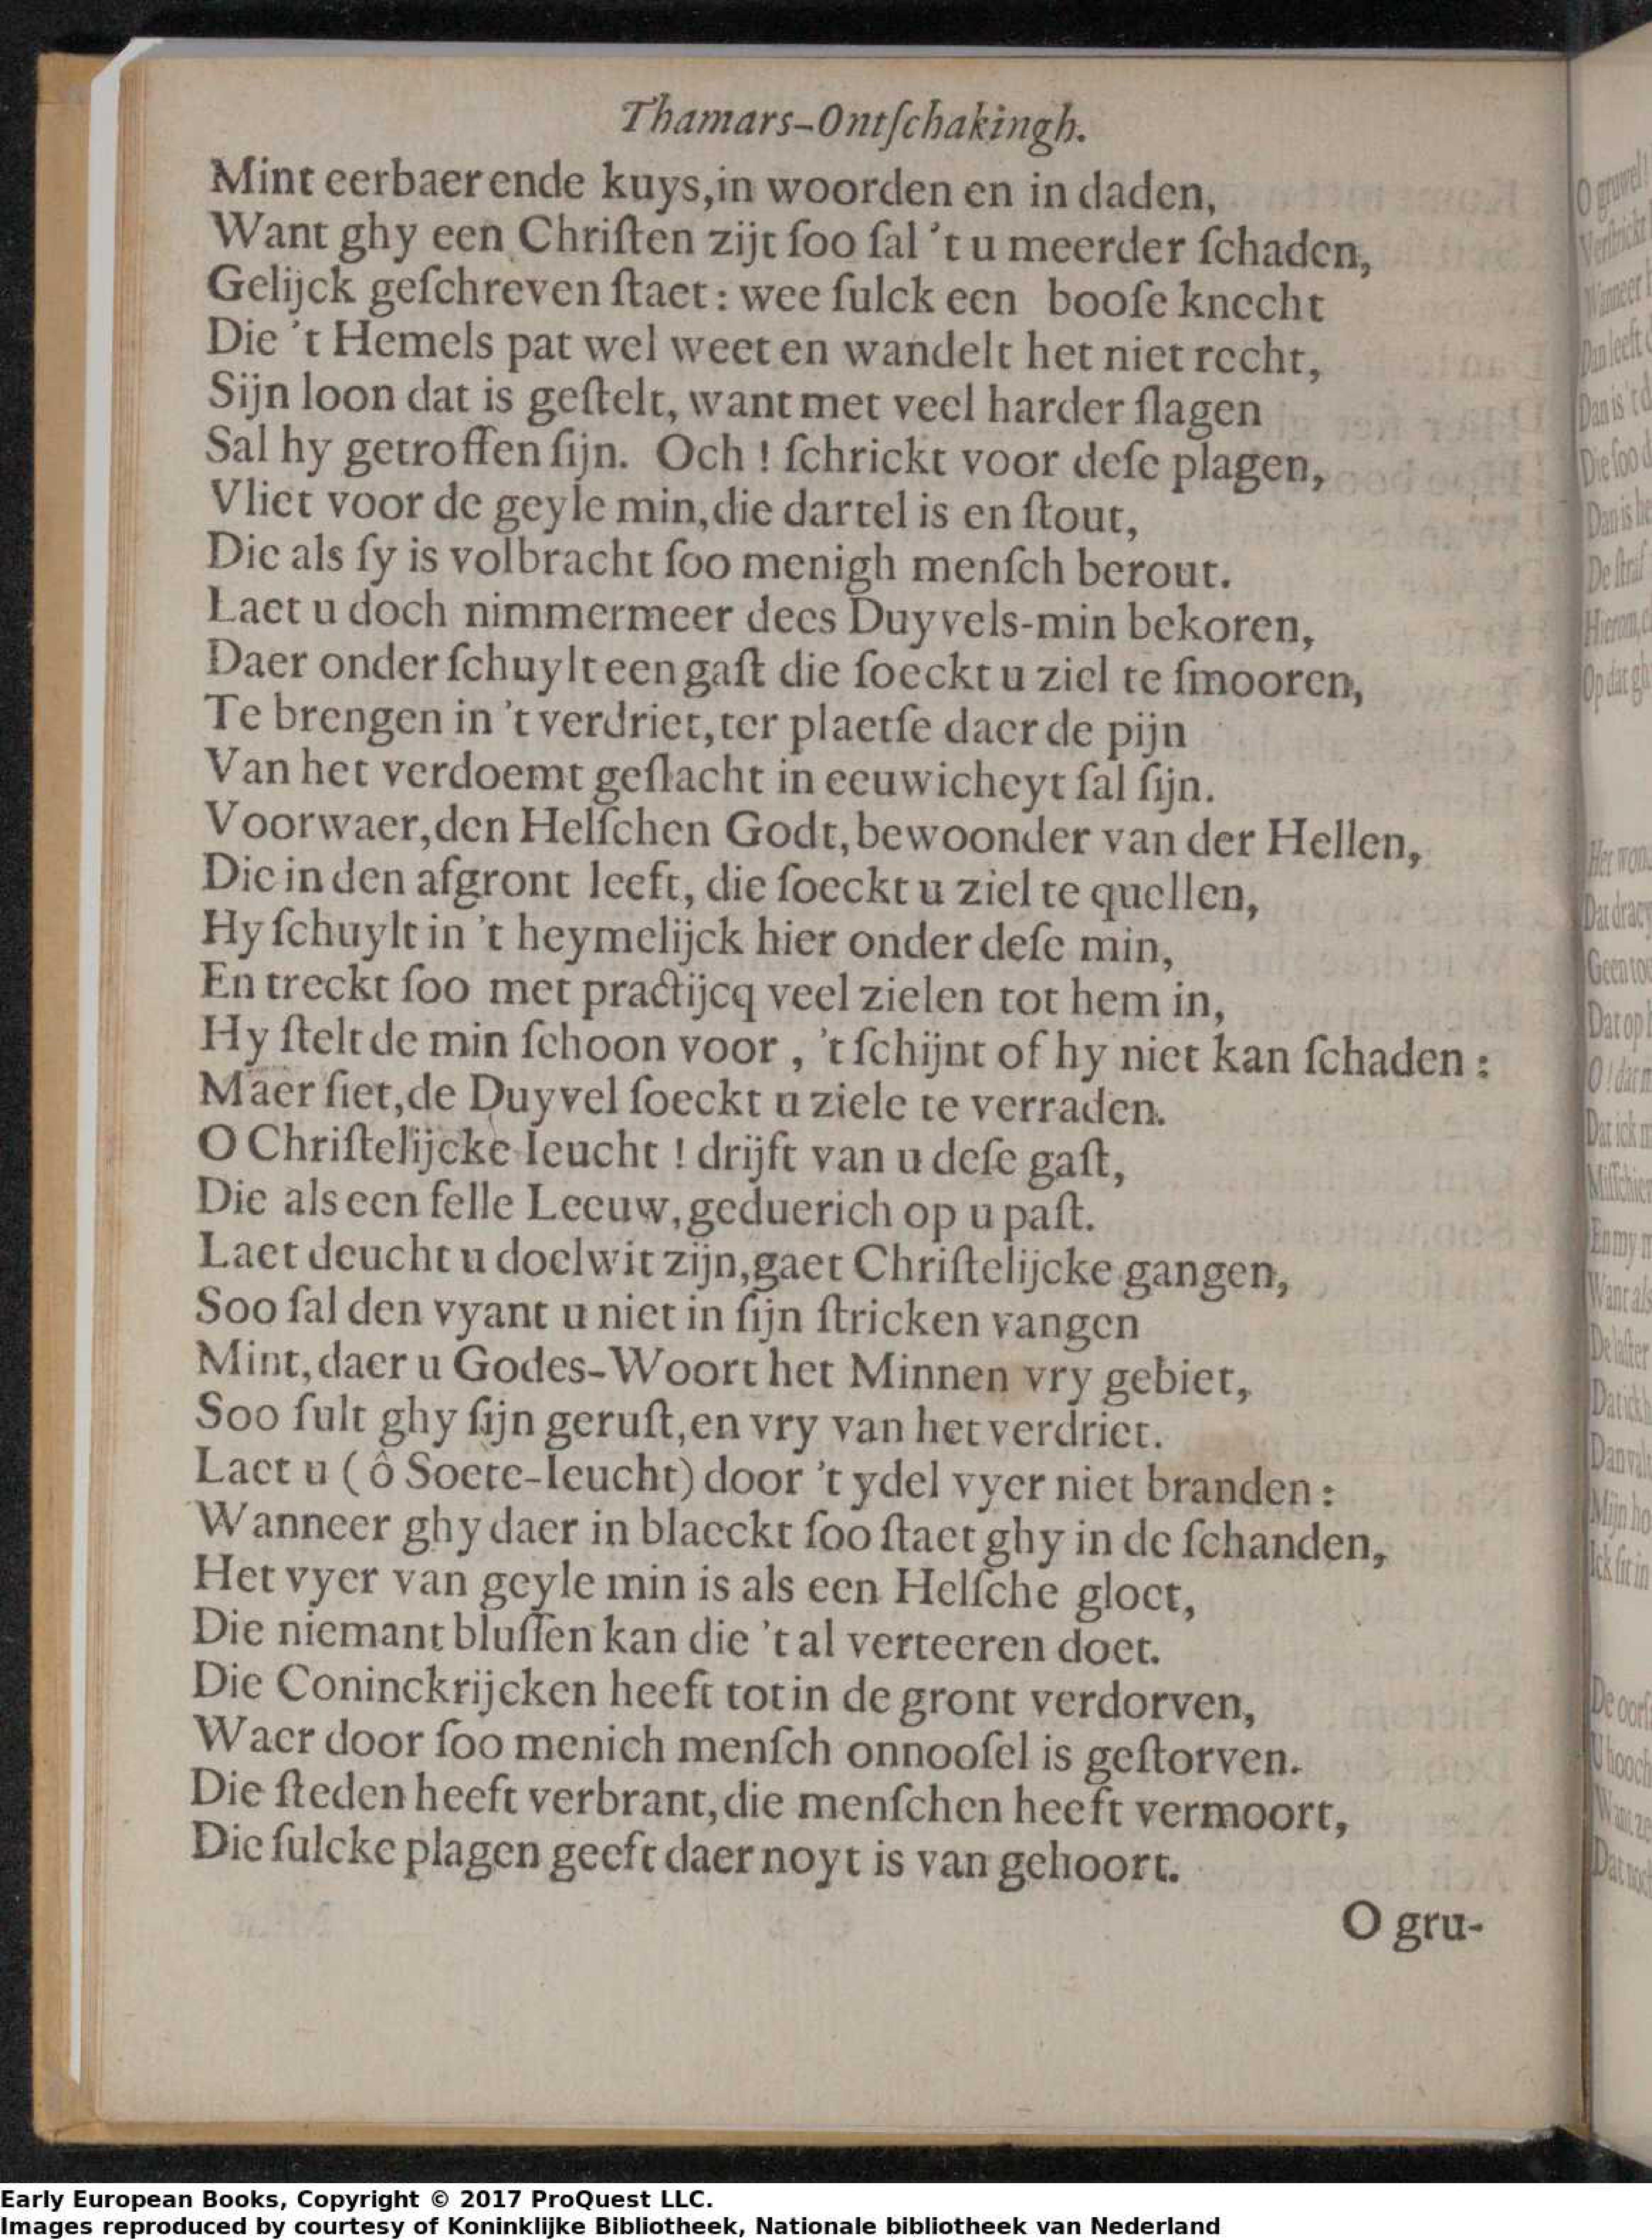 Thamars-Ontſchakingh.
Mint eerbaer ende kuys, in woorden en in daden,
Want ghy een Chriſten zijt ſoo ſal 't u meerder ſchaden,
Gelijck geſchreven ſtaet: wee ſulck een booſe knecht
Die 't Hemels pat wel weet en wandelt het niet recht,
Sijn loon dat is geſtelt, want met veel harder ſlagen
Sal hy getroffen ſijn. Och! ſchrickt voor deſe plagen,
Vliet voor de geyle min, die dartel is en ſtout,
Die als ſy is volbracht ſoo menigh menſch berout.
Laet u doch nimmermeer dees Duyvels-min bekoren,
Daer onder ſchuylt een gaſt die ſoeckt u ziel te ſmooren,
Te brengen in 't verdriet, ter plaetſe daer de pijn
Van het verdoemt geſlacht in eeuwicheyt ſal ſijn.
Voorwaer, den Helſchen Godt, bewoonder van der Hellen,
Die in den afgront leeft, die ſoeckt u ziel te quellen,
Hy ſchuylt in 't heymelijck hier onder deſe min,
En treckt ſoo met practijcq veel zielen tot hem in,
Hy ſtelt de min ſchoon voor, 't ſchijnt of hy niet kan ſchaden:
Maer ſiet, de Duyvel ſoeckt u ziele te verraden.
O Chriſtelijcke Ieucht! drijft van u deſe gaſt,
Die als een felle Leeuw, geduerich op u paſt.
Laet deucht u doelwit zijn, gaet Chriſtelijcke gangen,
Soo ſal den vyant u niet in ſijn ſtricken vangen
Mint, daer u Godes-Woort het Minnen vry gebiet,
Soo ſult ghy ſijn geruſt, en vry van het verdriet.
Laet u (ô Soete-Ieucht) door 't ydel vyer niet branden:
Wanneer ghy daer in blaeckt ſoo ſtaet ghy in de ſchanden,
Het vyer van geyle min is als een Helſche gloet,
Die niemant bluſſen kan die 't al verteeren doet.
Die Coninckrijcken heeft tot in de gront verdorven,
Waer door ſoo menich menſch onnooſel is geſtorven.
Die ſteden heeft verbrant, die menſchen heeft vermoort,
Die ſulcke plagen geeft daer noyt is van gehoort.
O gru-
Early European Books, Copyright © 2017 ProQuest LLC.
Images reproduced by courtesy of Koninklijke Bibliotheek, Nationale bibliotheek van Nederland